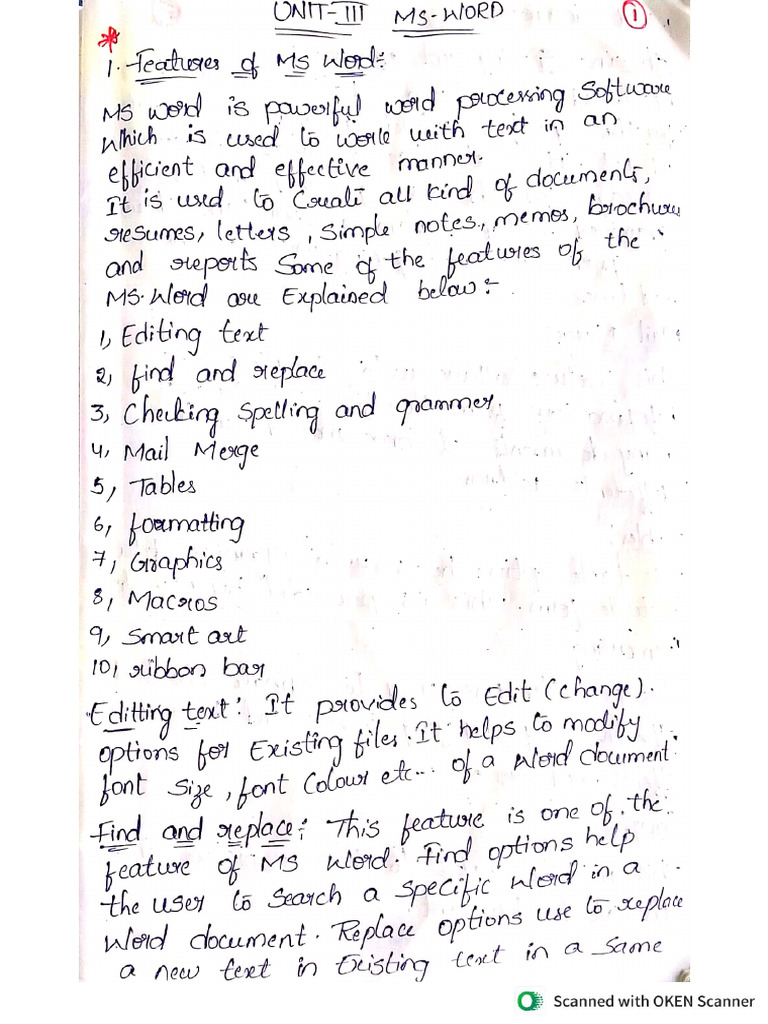 UNIT-III MS-WORD 1
1. Features of MS Word:
MS word is powerful word processing Software
which is used to work with text in an
efficient and effective manner.
It is used to Create all kind of documents,
resumes, letters, simple notes, memos, brochure
and reports Some of the features of the
MS-Word are Explained below:-
1, Editing text
2, find and replace
3, Checking spelling and grammer.
4, Mail Merge
5, Tables
6, formatting
7, Graphics
8, Macros
9, Smart art
10, ribbon bar
Editting text: It provides to Edit (change).
options for Existing files. It helps to modify
font size, font Colour etc... of a Word document.
Find and replace: This feature is one of the
feature of MS Word. Find options help
the user to search a specific word in a
Word document. Replace options use to replace
a new text in Existing text in a same
Scanned with OKEN Scanner